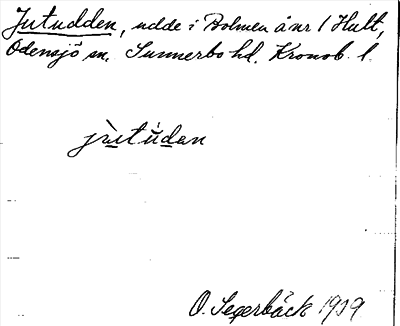 Jutudden, udde i Bolmen å nr 1 Hult,
Odensjö sn. Sunnerbo hd. Kronob. l.
jùtúdən
O. Segerbäck 1919